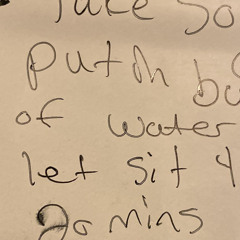 Take So
put in bo
of water
let sit 4
20 mins